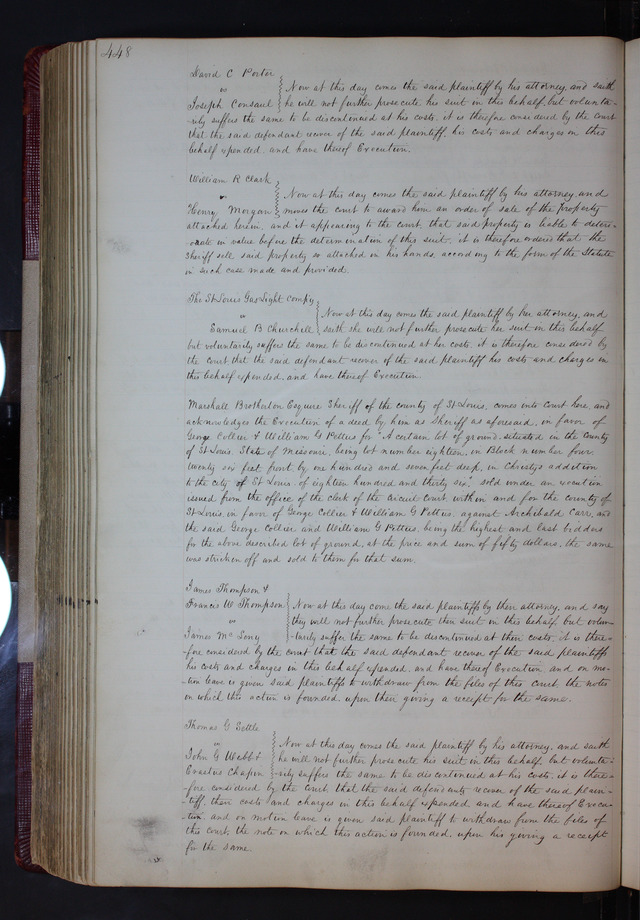 448
David C Porter
vs
Now at this day comes the said plaintiff by his attorney, and saith
Joseph Consaul he will not further prosecute his suit in this behalf, but volunta-
-rily suffers the same to be discontinued at his costs, it is therefore considered by the court
that the said defendant recover of the said plaintiff his costs and charges in this
behalf expended, and have thereof Execution.
William R Clark
vs
Now at this day comes the said plaintiff by his attorney, and
Henry Morgan moves the court to award him an order of sale of the property
attached herein, and it appearing to the court, that said property is liable to deteri-
orate in value before the determination of this suit, it is therefore ordered that the
Sheriff sell said property so attached in his hands, according to the form of the Statute
in such case made and provided.
The St Louis Gas Light Compy
vs
Now at this day comes the said plaintiff by her attorney, and
Samuel B Churchill saith she will not further prosecute her suit in this behalf
but voluntarily suffers the same to be discontinued at her costs, it is therefore considered by
the Court that the said defendant recover of the said plaintiff his costs and charges in
this behalf expended, and have thereof Execution
Marshall Brotherton Esquire Sheriff of the county of St Louis, comes into Court here, and
acknowledges the Execution of a deed by him as Sheriff as aforesaid, in favor of
George Collier & William G Pettus for "A certain lot of ground, situated in the County
of St Louis, State of Missouri, being lot number eighteen, in Block number four,
twenty six feet front by one hundred and seven feet deep, in Christys addition
to the city of St Louis, of eighteen hundred and thirty six," sold under an execution
issued from the office of the clerk of the Circuit Court within and for the county of
St Louis, in favor of George Collier & William G Pettus, against Archibald Carr, and
the said George Collier and William G Pettus, being the highest and last bidders
for the above described lot of ground, at the price and sum of fifty dollars, the same
was stricken off and sold to them for that sum.
James Thompson &
Francis W Thompson Now at this day come the said plaintiffs by their attorney, and say
vs
they will not further prosecute their suit in this behalf, but volun-
James Mc -tarily suffer the same to be discontinued at their costs, it is there-
-fore considered by the court that the said defendant recover of the said plaintiffs
his costs and charges in this behalf expended, and have thereof Execution, and on mo-
-tion leave is given said plaintiffs to withdraw from the files of this Court, the notes
on which this action is founded, upon their giving a receipt for the same.
Thomas G Settle
vs
Now at this day comes the said plaintiff by his attorney, and saith
John G Webb & he will not further prosecute his suit in this behalf but volunta-
Erastus Chapin -rily suffers the same to be discontinued at his costs, it is there-
-fore considered by the Court that the said defendants recover of the said plain-
-tiff, their costs and charges in this behalf expended and have thereof Execu-
-tion, and on motion leave is given said plaintiff to withdraw from the files of
this court, the note on which this action is founded, upon his giving a receipt
for the same